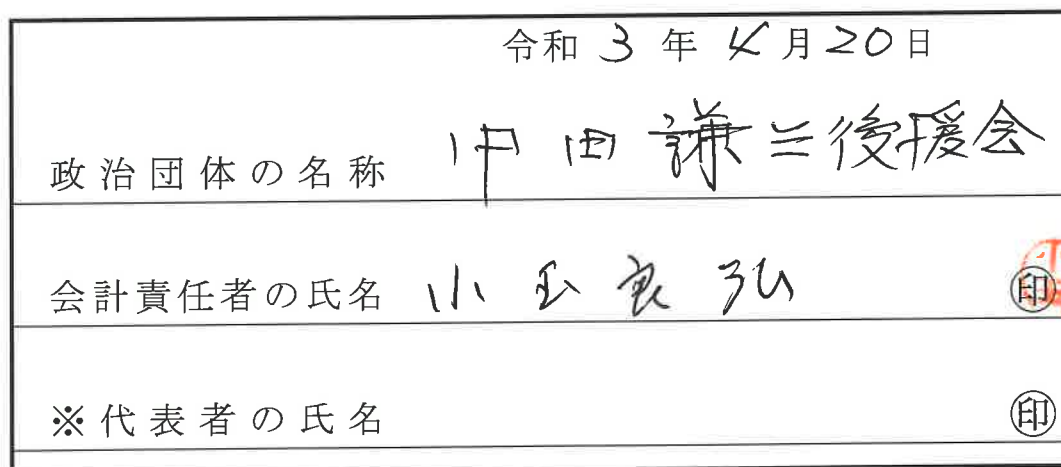 令和3年4月20日
政治団体の名称 仲田謙二後援会
会計責任者の氏名 小玉良弘 ㊞
※代表者の氏名 ㊞